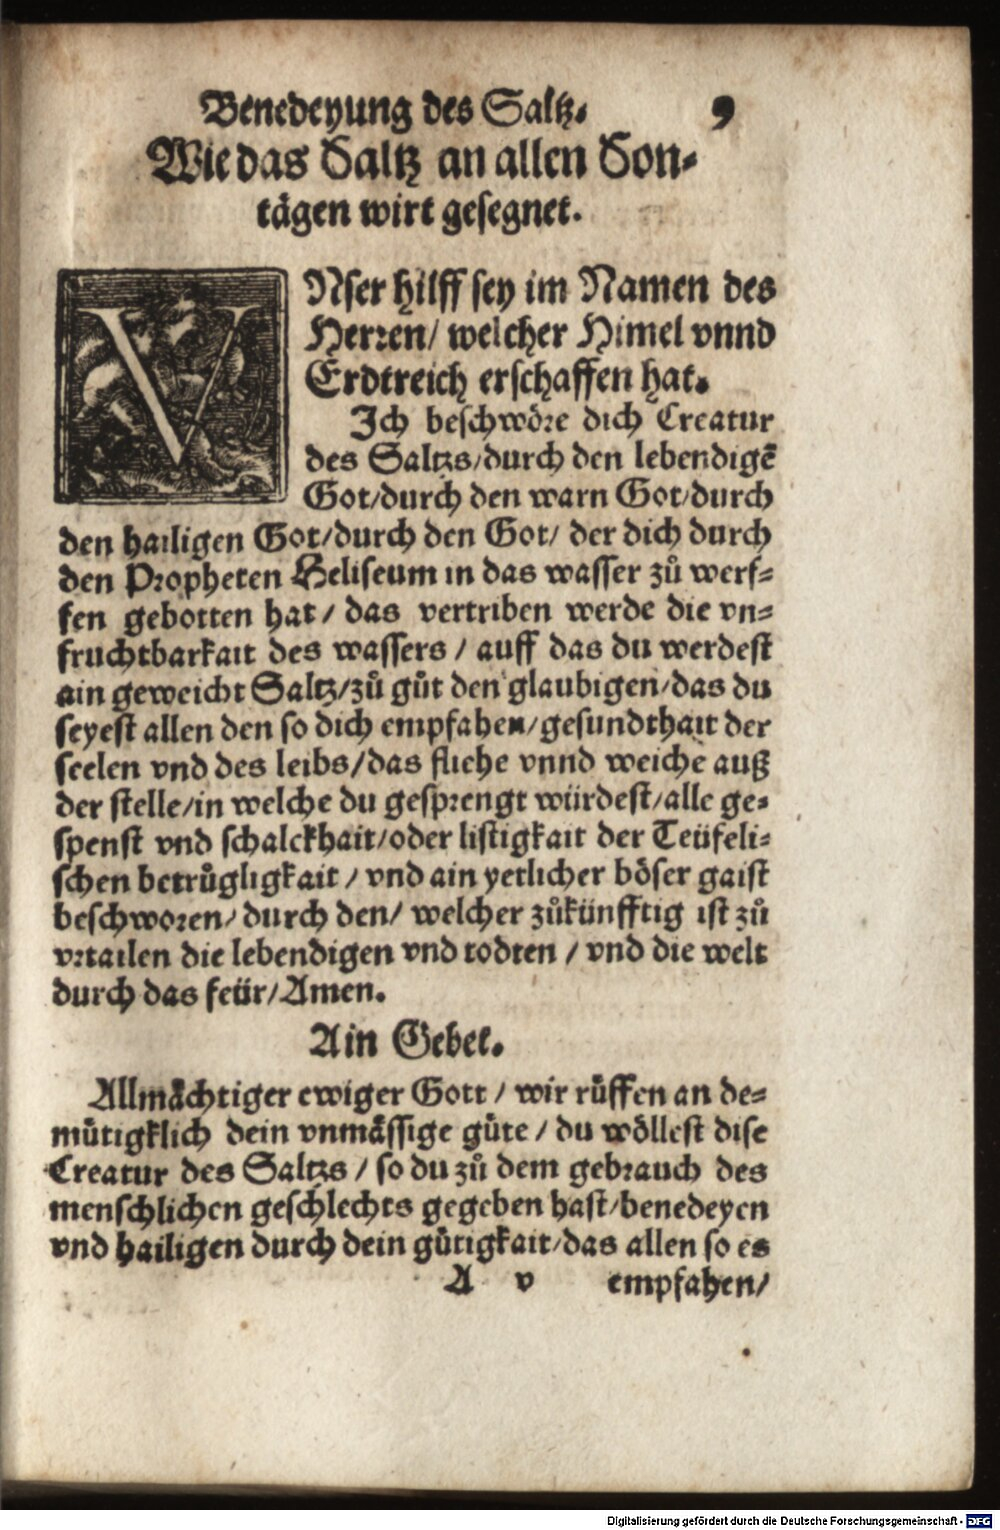 Benedeyung des Saltz. 9
Wie das Saltz an allen Son-
tägen wirt gesegnet.
VNser hilff sey im Namen des
Herꝛen/ welcher Himel vnnd
Erdtreich erschaffen hat.
Ich beschwöꝛe dich Creatur
des Saltzs/durch den lebendigē
Got/durch den warn Got/durch
den hailigen Got/durch den Got/ der dich durch
den Pꝛopheten Heliseum in das wasser zů werf-
fen gebotten hat/ das vertriben werde die vn-
fruchtbarkait des wassers / auff das du werdest
ain geweicht Saltz/zů gůt den glaubigen/das du
seyest allen den so dich empfahen/gesundthait der
seelen vnd des leibs/das fliehe vnnd weiche auß
der stelle/in welche du gespꝛengt würdest/alle ge-
spenst vnd schalckhait/oder listigkait der Teüfeli-
schen betrůgligkait / vnd ain yetlicher böser gaist
beschwoꝛen/ durch den/ welcher zůkünfftig ist zů
vꝛtailen die lebendigen vnd todten / vnd die welt
durch das feür/Amen.
Ain Gebet.
Allmächtiger ewiger Gott / wir růffen an de-
mütigklich dein vnmässige güte / du wöllest dise
Creatur des Saltzs / so du zů dem gebꝛauch des
menschlichen geschlechts gegeben hast/benedeyen
vnd hailigen durch dein gütigkait/das allen so es
A v empfahen/
Digitalisierung gefördert durch die Deutsche Forschungsgemeinschaft - DFG